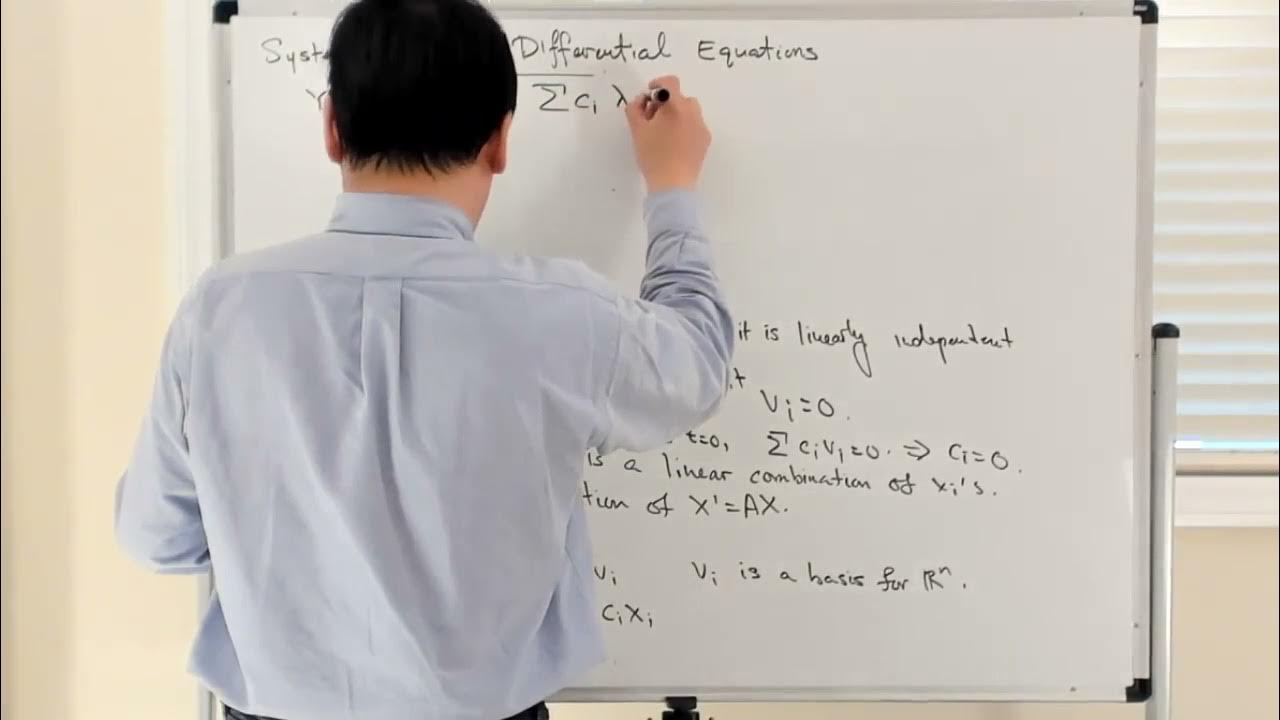 Differential Equations
Σ cᵢ λ
it is linearly independent
Vᵢ=0.
t=0, Σ cᵢvᵢ=0. ⇒ cᵢ=0.
is a linear combination of xᵢ's.
of X'=AX.
vᵢ vᵢ is a basis for ℝⁿ.
cᵢxᵢ